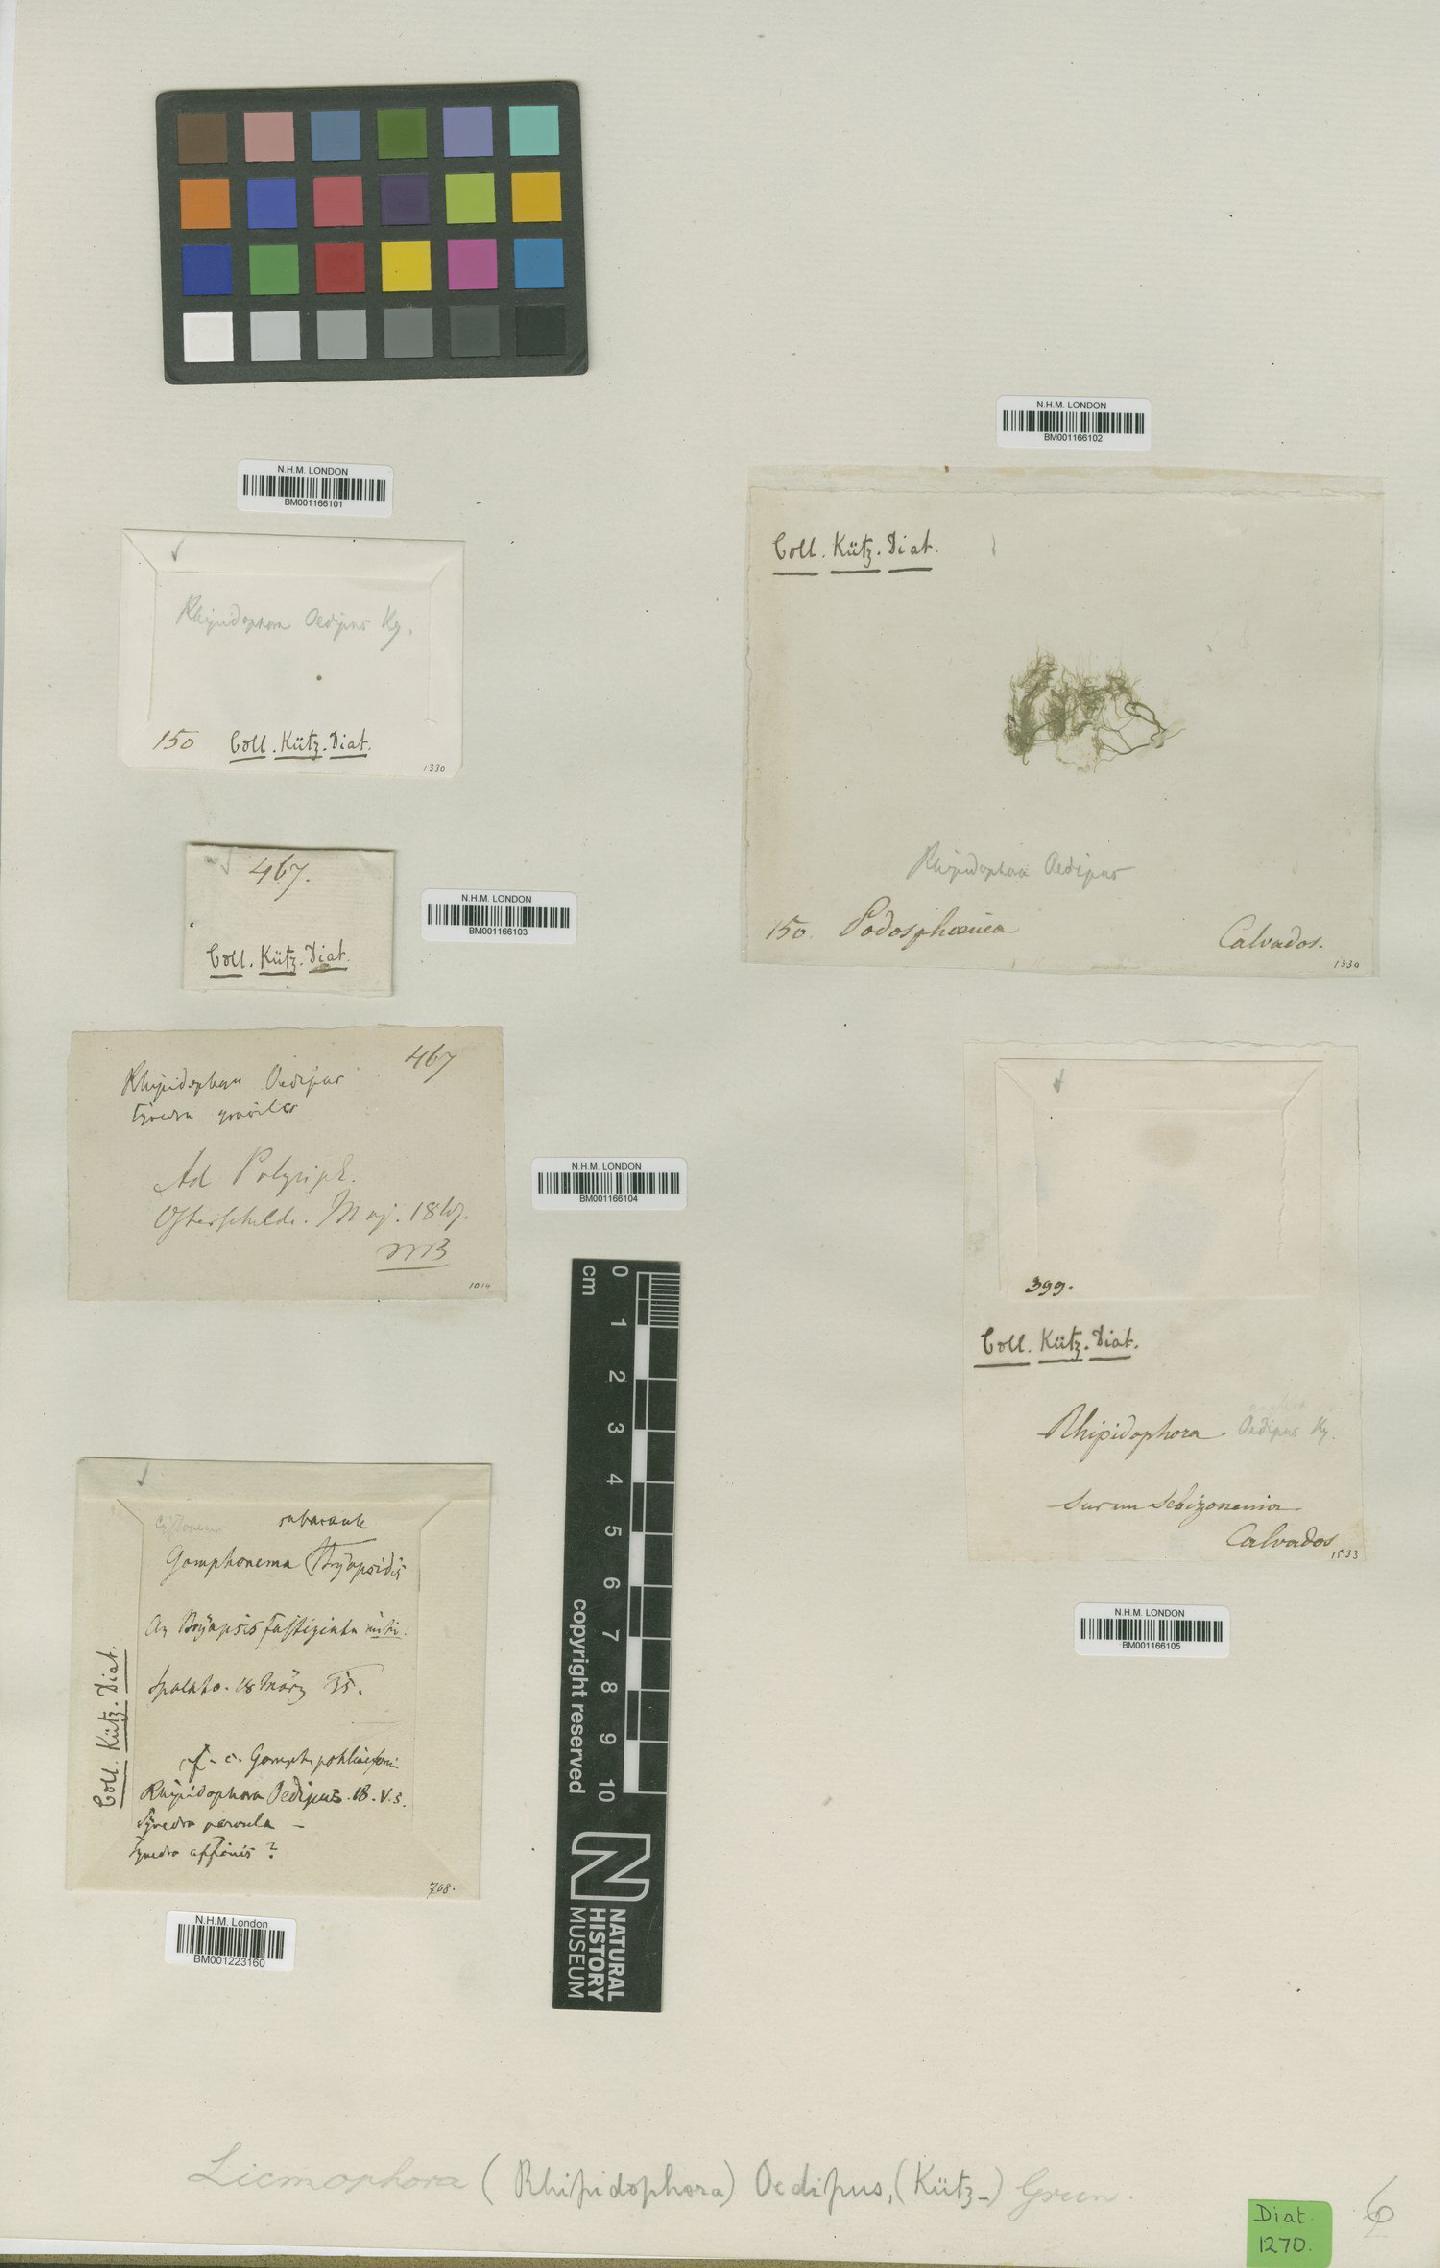 N.H.M. LONDON
BM001166101
Rhipidophora Oedipus Kg.
150 Coll. Kütz. Diat.
1330
467.
Coll. Kütz. Diat.
N.H.M. LONDON
BM001166103
Rhipidophora Oedipus 467
Synedra gracilis
Ad Polysiph.
Maj. 1847.
1014
N.H.M. LONDON
BM001166104
subacaule
Gomphonema Bryopsidis
Bryopsis fastigiata mihi.
Spalato. 18 März 35.
Rhipidophora Oedipus. B. v. s.
Synedra parvula –
Synedra affinis ?
Coll. Kütz. Diat.
708.
N.H.M. London
BM001223160
N.H.M. LONDON
BM001166102
Coll. Kütz. Diat.
Rhipidophora Oedipus
150. Podosphaenia Calvados.
1330
399.
Coll. Kütz. Diat.
Rhipidophora Oedipus Kg.
Calvados
1533
N.H.M. LONDON
BM001166105
cm
0 1 2 3 4 5 6 7 8 9 10
copyright reserved
NATURAL
HISTORY
MUSEUM
Licmophora (Rhipidophora) Oedipus, (Kütz-) Grun.
Diat.
1270.
6